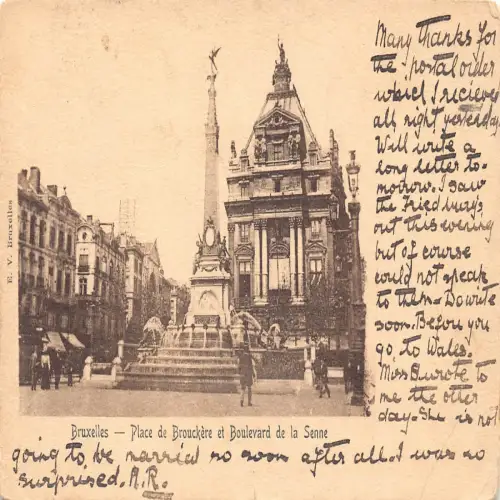 Many thanks for
the postal order
which I recieved
all right yesterday.
Will write a
long letter to-
morrow. I saw
the Friedburg's
out this evening
but of course
could not speak
to them. Do write
soon. Before you
go to Wales.
Miss B. wrote to
me the other
day. She is not
going to be married so soon after all. I was so
surprised. A.R.
E. V. Bruxelles
Bruxelles — Place de Brouckère et Boulevard de la Senne